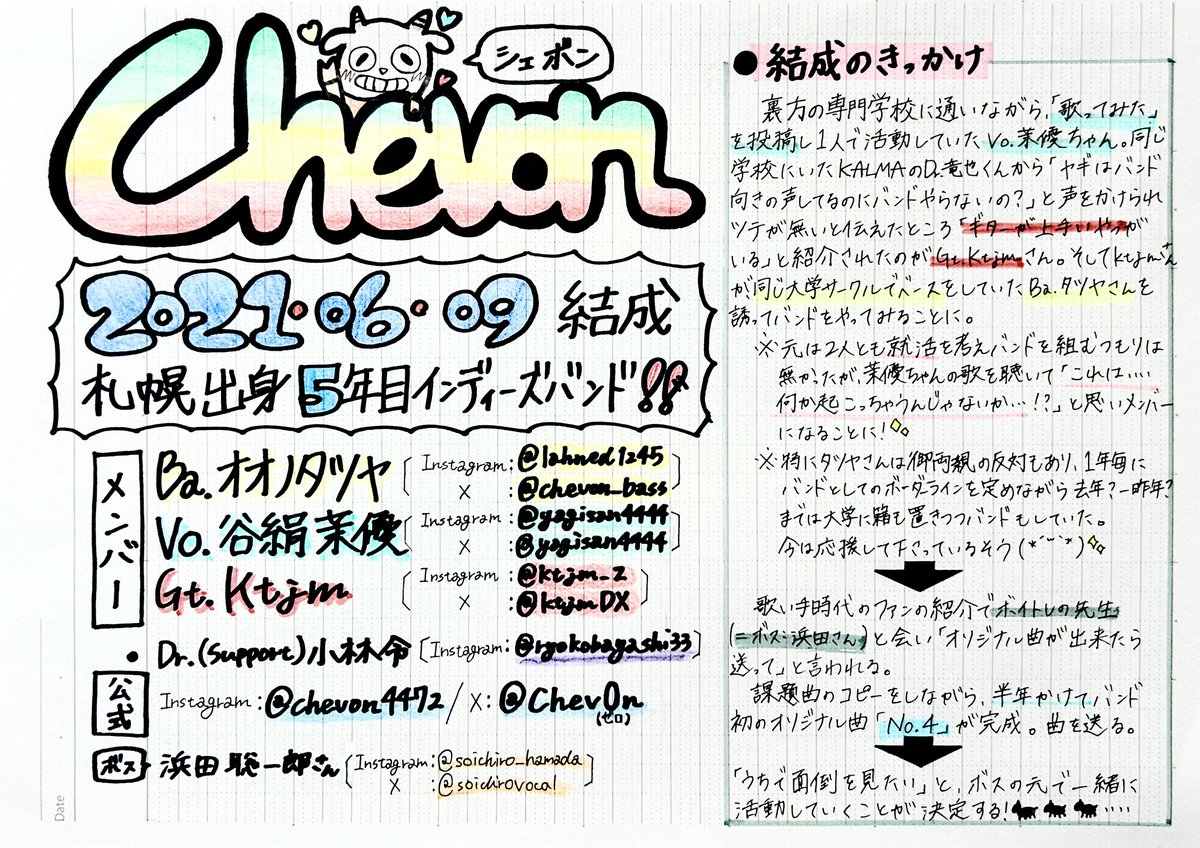 Chevon
シェボン
2021・06・09 結成
札幌出身5年目インディーズバンド!!
メンバー
Ba.オオノタツヤ
Instagram:@lahned1245
X:@chevon_bass
Vo.谷絹茉優
Instagram:@yagisan4444
X:@yagisan4444
Gt.Ktjm
Instagram:@ktjm_z
X:@ktjmDX
• Dr.(support)小林令
Instagram:@ryokobayashi33
公式
Instagram:@chevon4472/X:@Chev0n
(ゼロ)
ボス
浜田聡一郎さん
Instagram:@soichiro_hamada
X:@soichirovocal
Date
●結成のきっかけ
裏方の専門学校に通いながら、「歌ってみた」
を投稿し1人で活動していたVo.茉優ちゃん。同じ
学校にいたKALMAのDr.竜也くんから「ヤギはバンド
向きの声してるのにバンドやらないの?」と声をかけられ
ツテが無いと伝えたところ「ギターが上手いやつが
いる」と紹介されたのがGt.Ktjmさん。そしてktjmさん
が同じ大学サークルでベースをしていたBa.タツヤさんを
誘ってバンドをやってみることに。
※元は2人とも就活を考えバンドを組むつもりは
無かったが、茉優ちゃんの歌を聴いて「これは‥‥
何か起こっちゃうんじゃないか…!?」と思いメンバー
になることに!
※特にタツヤさんは御両親の反対もあり、1年毎に
バンドとしてのボーダーラインを定めながら去年?一昨年?
までは大学に籍も置きつつバンドもしていた。
今は応援して下さっているそう(*´˘`*)
歌い手時代のファンの紹介でボイトレの先生
(=ボス・浜田さん)と会い「オリジナル曲が出来たら
送って」と言われる。
課題曲のコピーをしながら、半年かけてバンド
初のオリジナル曲「No.4」が完成。曲を送る。
「うちで面倒を見たい」と、ボスの元で一緒に
活動していくことが決定する!‥‥